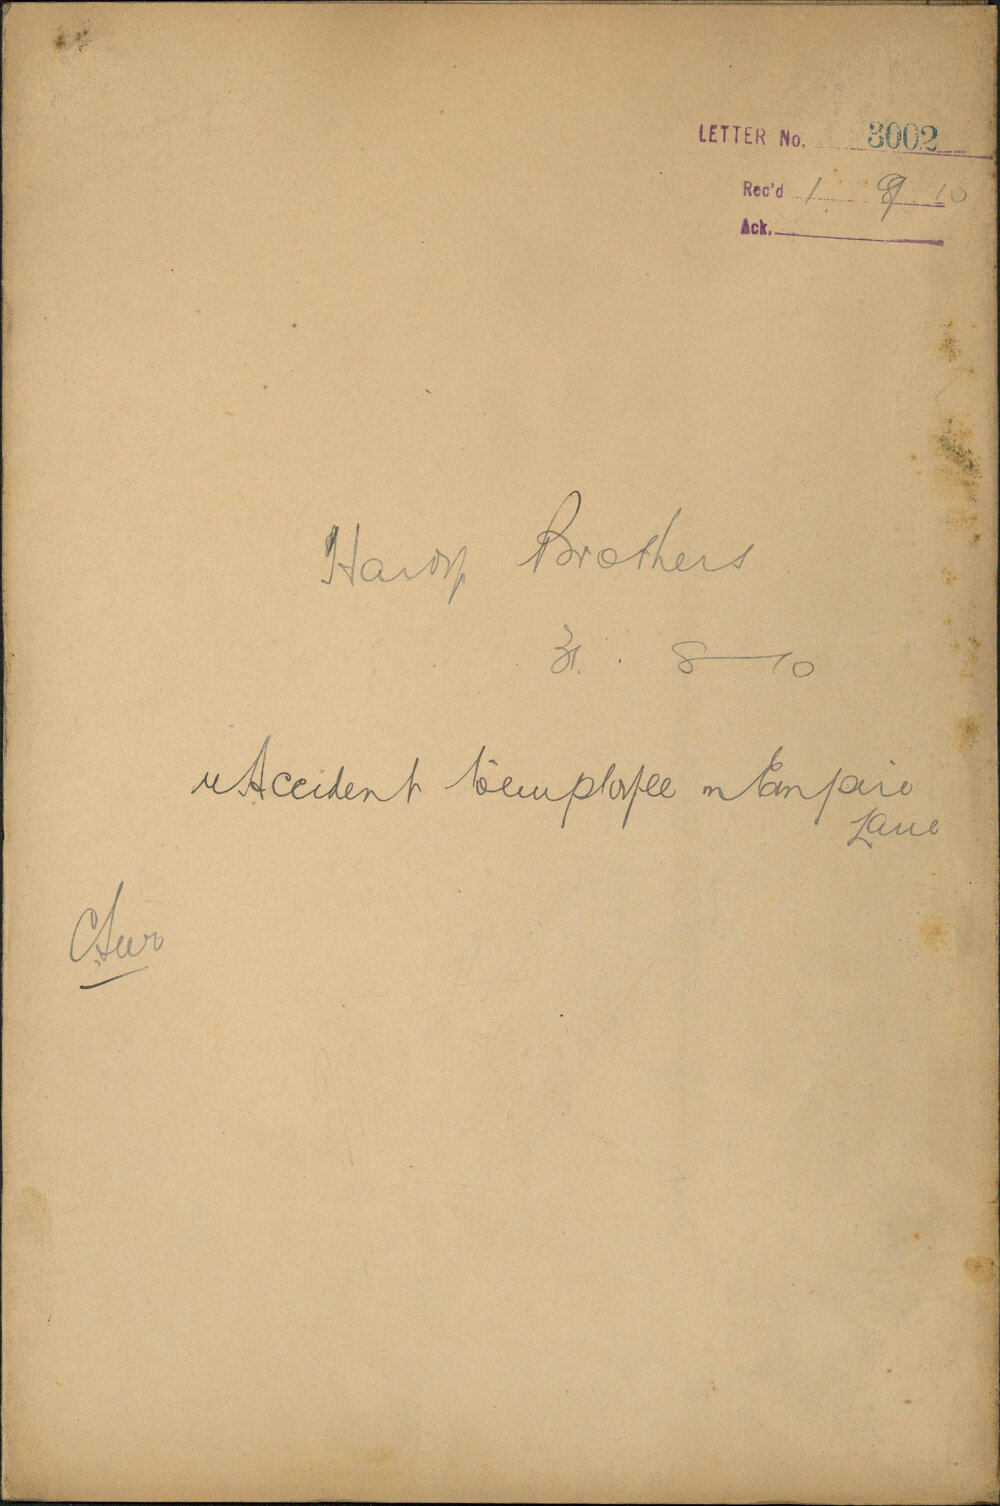 LETTER No. 3002
Rec'd 1 9 10
Ack.
Hardy Brothers
31. 8-10
re Accident to employee in Empire
Lane